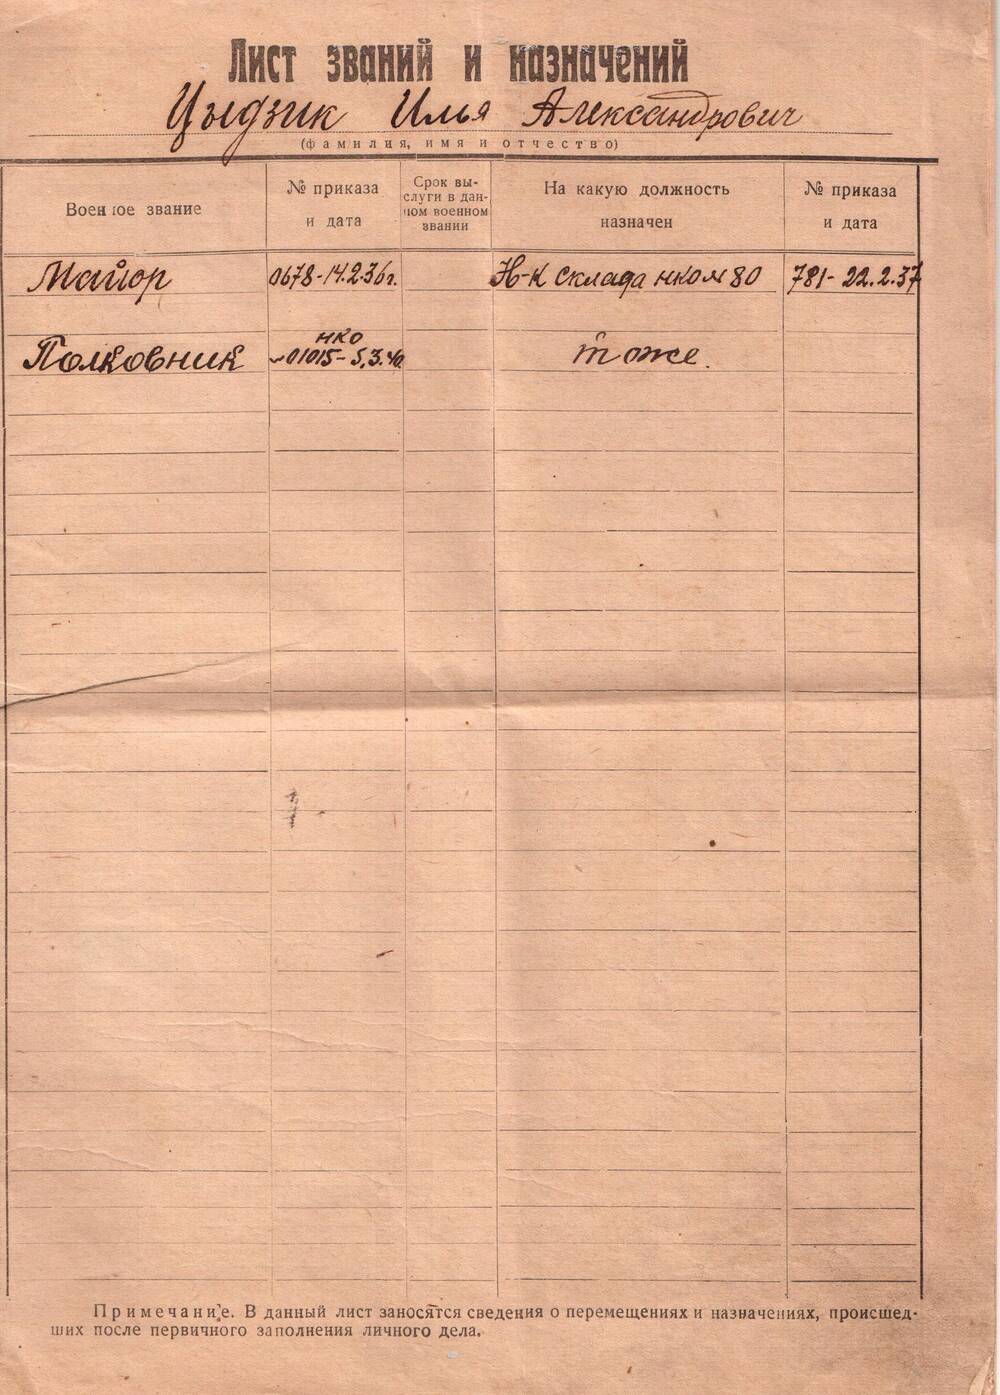 Лист званий и назначений
Цыдзик Илья Александрович
(фамилия, имя и отчество)
Военное звание
№ приказа
и дата
Срок вы-
слуги в дан-
ном военном
звании
На какую должность
назначен
№ приказа
и дата
Майор 0678-14.2.36г. Н-к склада нком 80 781-22.2.37
НКО
Полковник 01015-5.3.40 тоже.
Примечание. В данный лист заносятся сведения о перемещениях и назначениях, происшед-
ших после первичного заполнения личного дела.